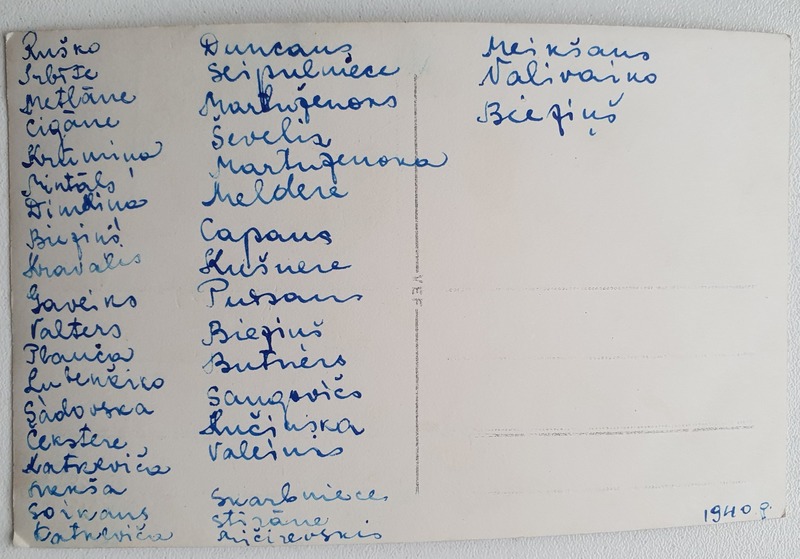 Ruško
Irbīte
Metlāne
Cigāne
Krūmiņa
Mintāls
Dimdiņa
Bieziņš
Kravalis
Gaveiko
Valters
Plauča
Lubenčiko
Sadovska
Čekstere
Matkeviča
Soikans
Matkeviča
Duncans
Seipulniece
Martuženoks
Ševelis
Martuženoka
Meldere
Capans
Kušnere
Pussans
Bieziņš
Butners
Sangovičs
Kučinska
Valeinis
Skarbniece
Stirāne
Mičirevskis
Meikšans
Valivaiko
Bieziņš
VEF
1940 g.